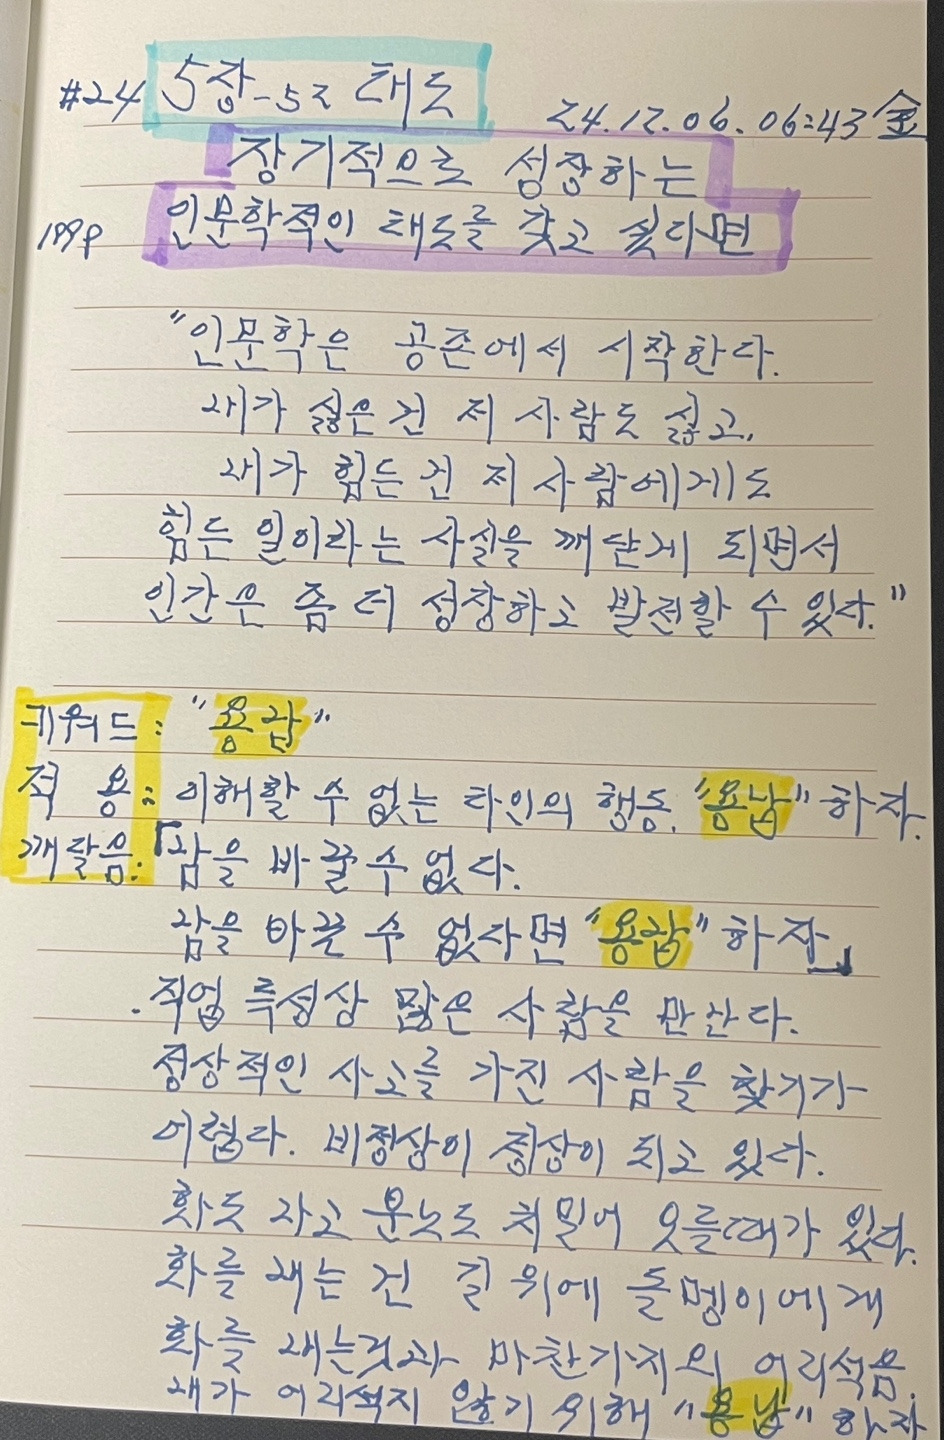 #24 5장-5코 태도
24.12.06. 06:43 金
장기적으로 성장하는
199p 인문학적인 태도를 갖고 싶다면
"인문학은 공존에서 시작한다.
내가 싫은 건 저 사람도 싫고,
내가 힘든 건 저 사람에게도
힘든 일이라는 사실을 깨닫게 되면서
인간은 좀 더 성장하고 발전할 수 있다."
키워드: "용납"
적용: 이해할 수 없는 타인의 행동. "용납"하자.
깨달음:「남을 바꿀 수 없다.
남을 바꿀 수 없다면 "용납"하자」
. 직업 특성상 많은 사람을 만난다.
정상적인 사고를 가진 사람을 찾기가
어렵다. 비정상이 정상이 되고 있다.
화도 나고 분노도 치밀어 오를때가 있다.
화를 내는 건 길 위에 돌멩이에게
화를 내는것과 마찬가지의 어리석음.
내가 어리석지 않기 위해 "용납"하자